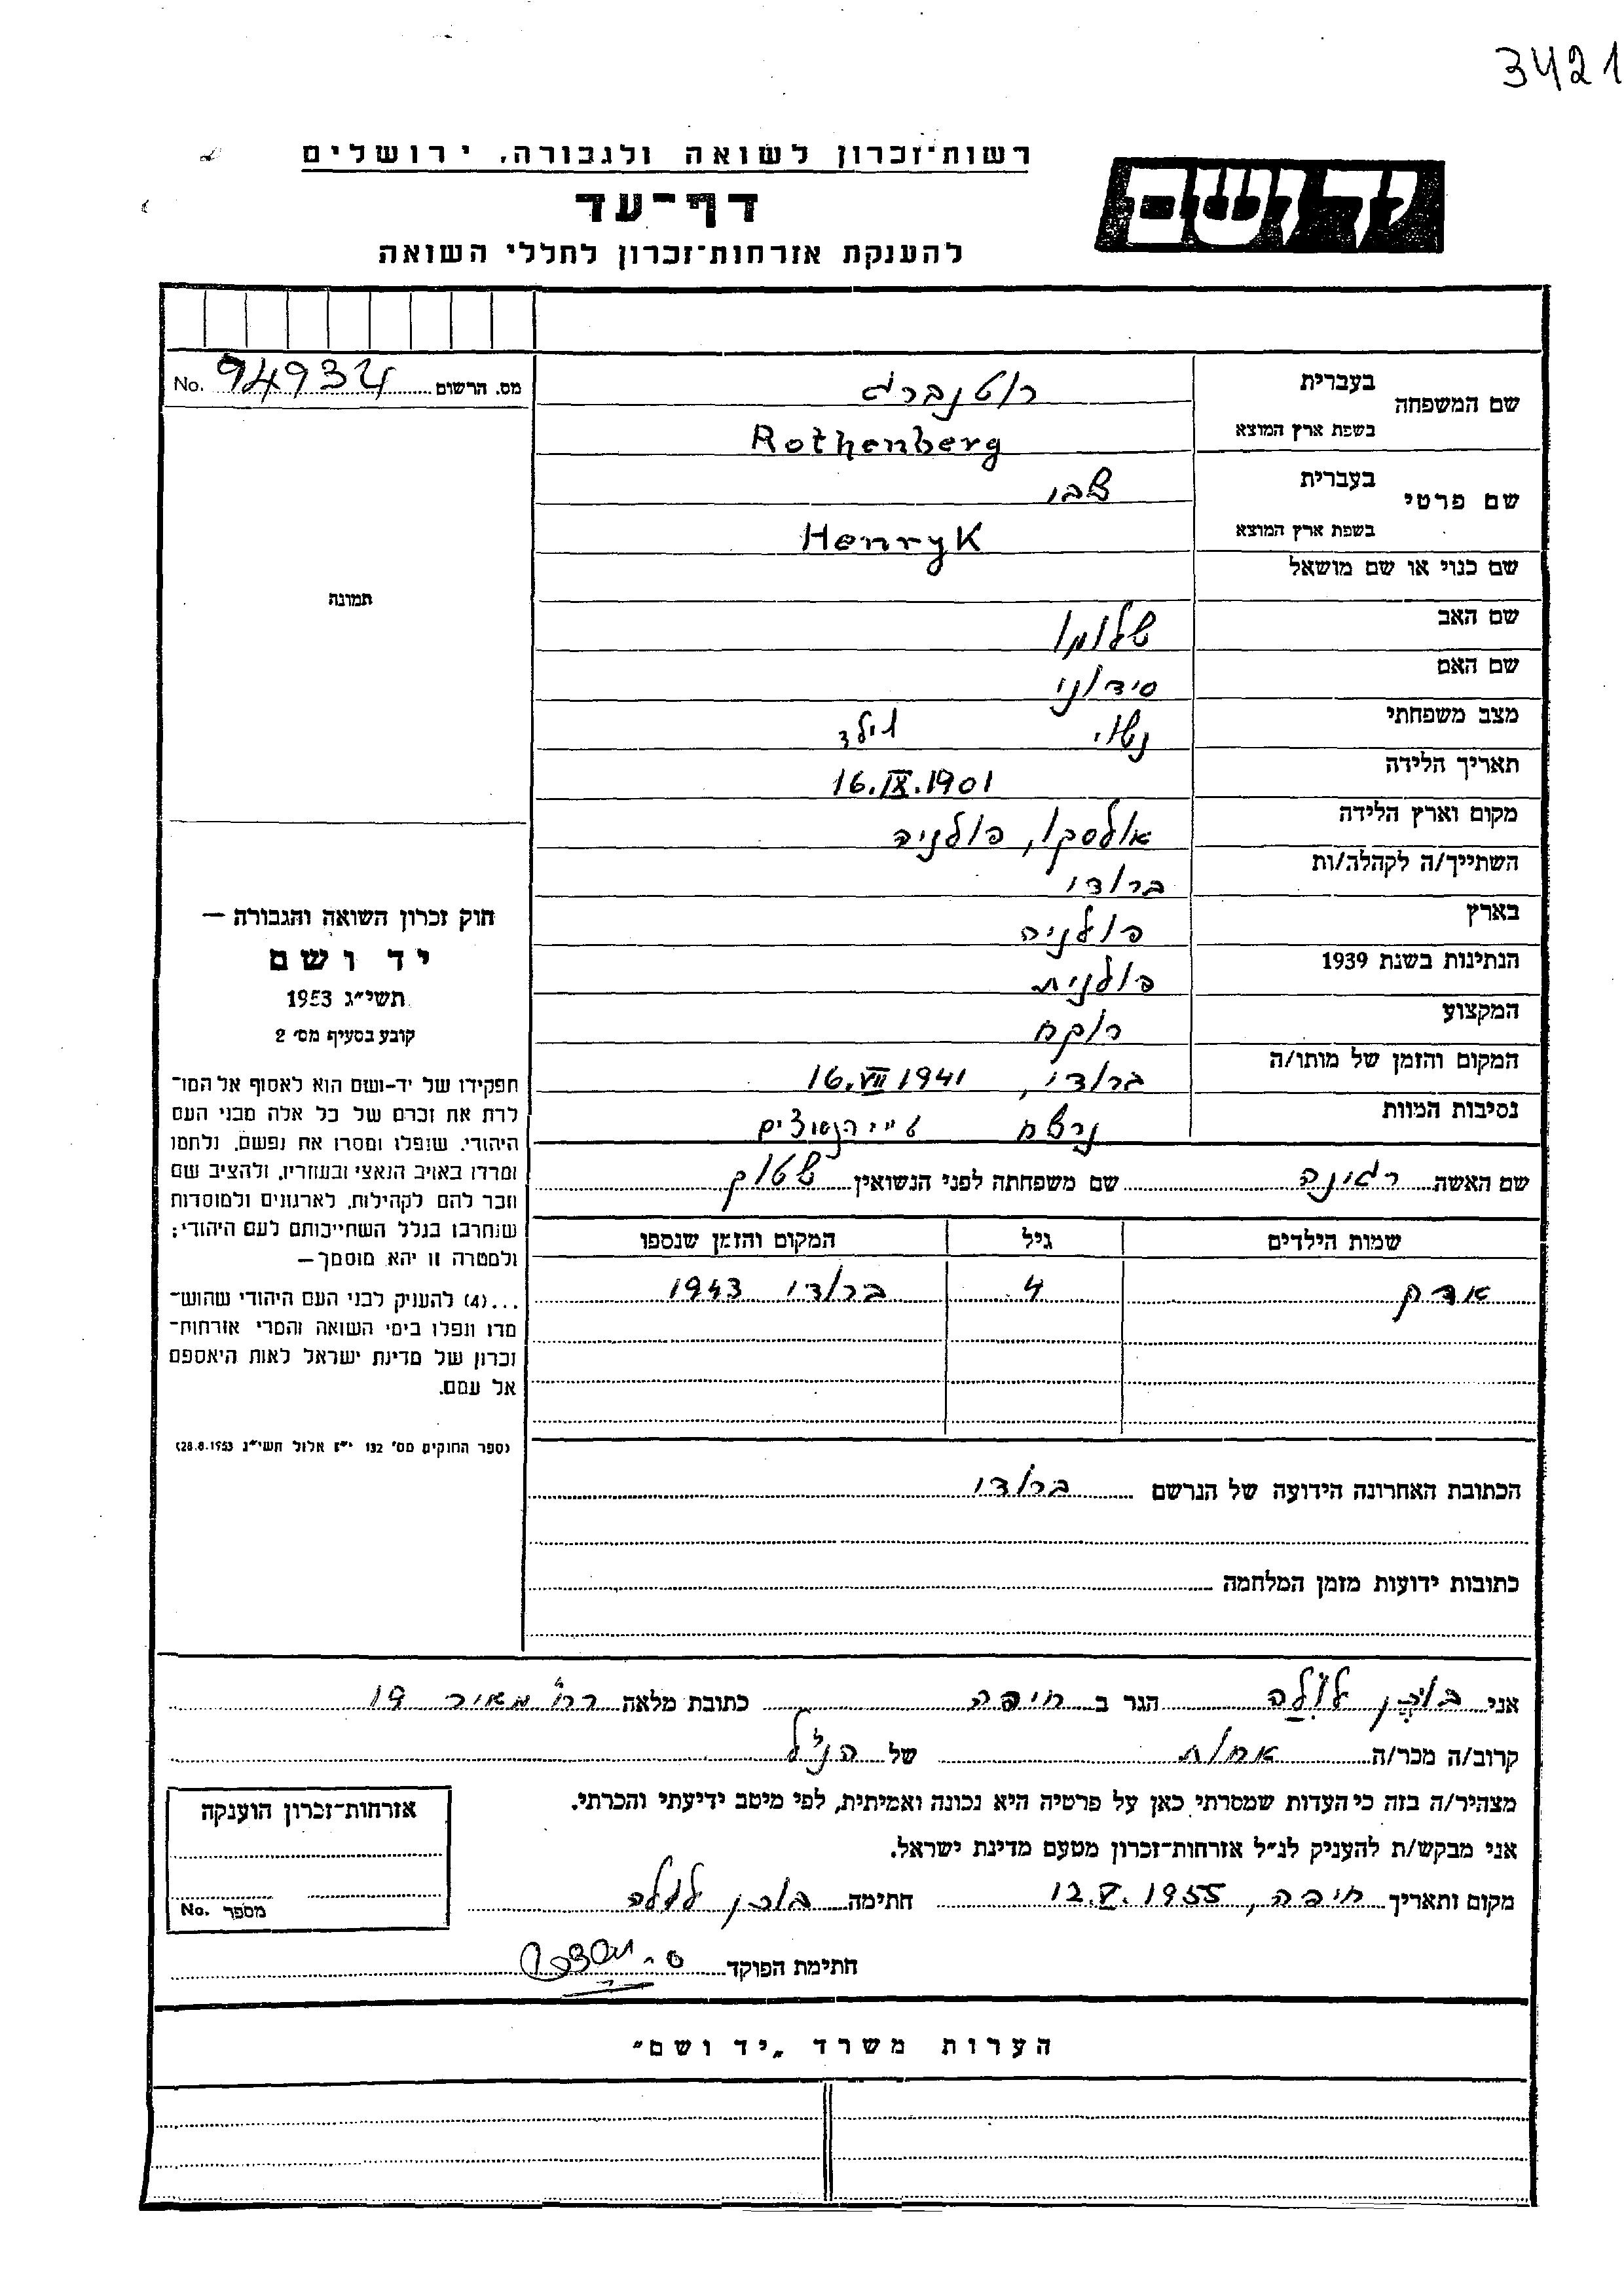 3421
רשות־זכרון לשואה ולגבורה, ירושלים
יד ושם
דף־עד
להענקת אזרחות־זכרון לחללי השואה
מס. הרשום 94934 No.
שם המשפחה
בעברית רוטנברג
בשפת ארץ המוצא Rothenberg
שם פרטי
בעברית צבי
בשפת ארץ המוצא Henryk
שם כנוי או שם מושאל
שם האב שלומו
שם האם סידוני
מצב משפחתי נשוי וילד
תאריך הלידה 16.IX.1901
מקום וארץ הלידה אולסקו, פולניה
השתייך/ה לקהלה/ות ברודי
בארץ פולניה
הנתינות בשנת 1939 פולנית
המקצוע רוקח
המקום והזמן של מותו/ה ברודי, 16.VII 1941
נסיבות המוות נרצח ע״י הנאצים
שם האשה רגינה שם משפחתה לפני הנשואין שטוק
שמות הילדים גיל המקום והזמן שנספו
אדק 4 ברודי 1943
הכתובת האחרונה הידועה של הנרשם ברודי
כתובות ידועות מזמן המלחמה
תמונה
חוק זכרון השואה והגבורה —
יד ושם
תשי״ג 1953
קובע בסעיף מס׳ 2
תפקידו של יד-ושם הוא לאסוף אל המו־
לדת את זכרם של כל אלה מבני העם
היהודי, שנפלו ומסרו את נפשם, נלחמו
ומרדו באויב הנאצי ובעוזריו, ולהציב שם
וזכר להם לקהילות, לארגונים ולמוסדות
שנחרבו בגלל השתייכותם לעם היהודי;
ולמטרה זו יהא מוסמך—
...(4) להעניק לבני העם היהודי שהוש־
מדו ונפלו בימי השואה והמרי אזרחות־
זכרון של מדינת ישראל לאות היאספם
אל עמם.
(ספר החוקים מס׳ 132 י״ז אלול תשי״ג 28.8.1953)
אני בוכן לולה הגר ב חיפה כתובת מלאה רח׳ מאיר 19
קרוב/ה מכר/ה אחות של הנ״ל
מצהיר/ה בזה כי העדות שמסרתי כאן על פרטיה היא נכונה ואמיתית, לפי מיטב ידיעתי והכרתי.
אני מבקש/ת להעניק לנ״ל אזרחות־זכרון מטעם מדינת ישראל.
מקום ותאריך חיפה, 12.V.1955 חתימה בוכן לולה
חתימת הפוקד
אזרחות־זכרון הוענקה
מספר No.
הערות משרד „יד ושם״